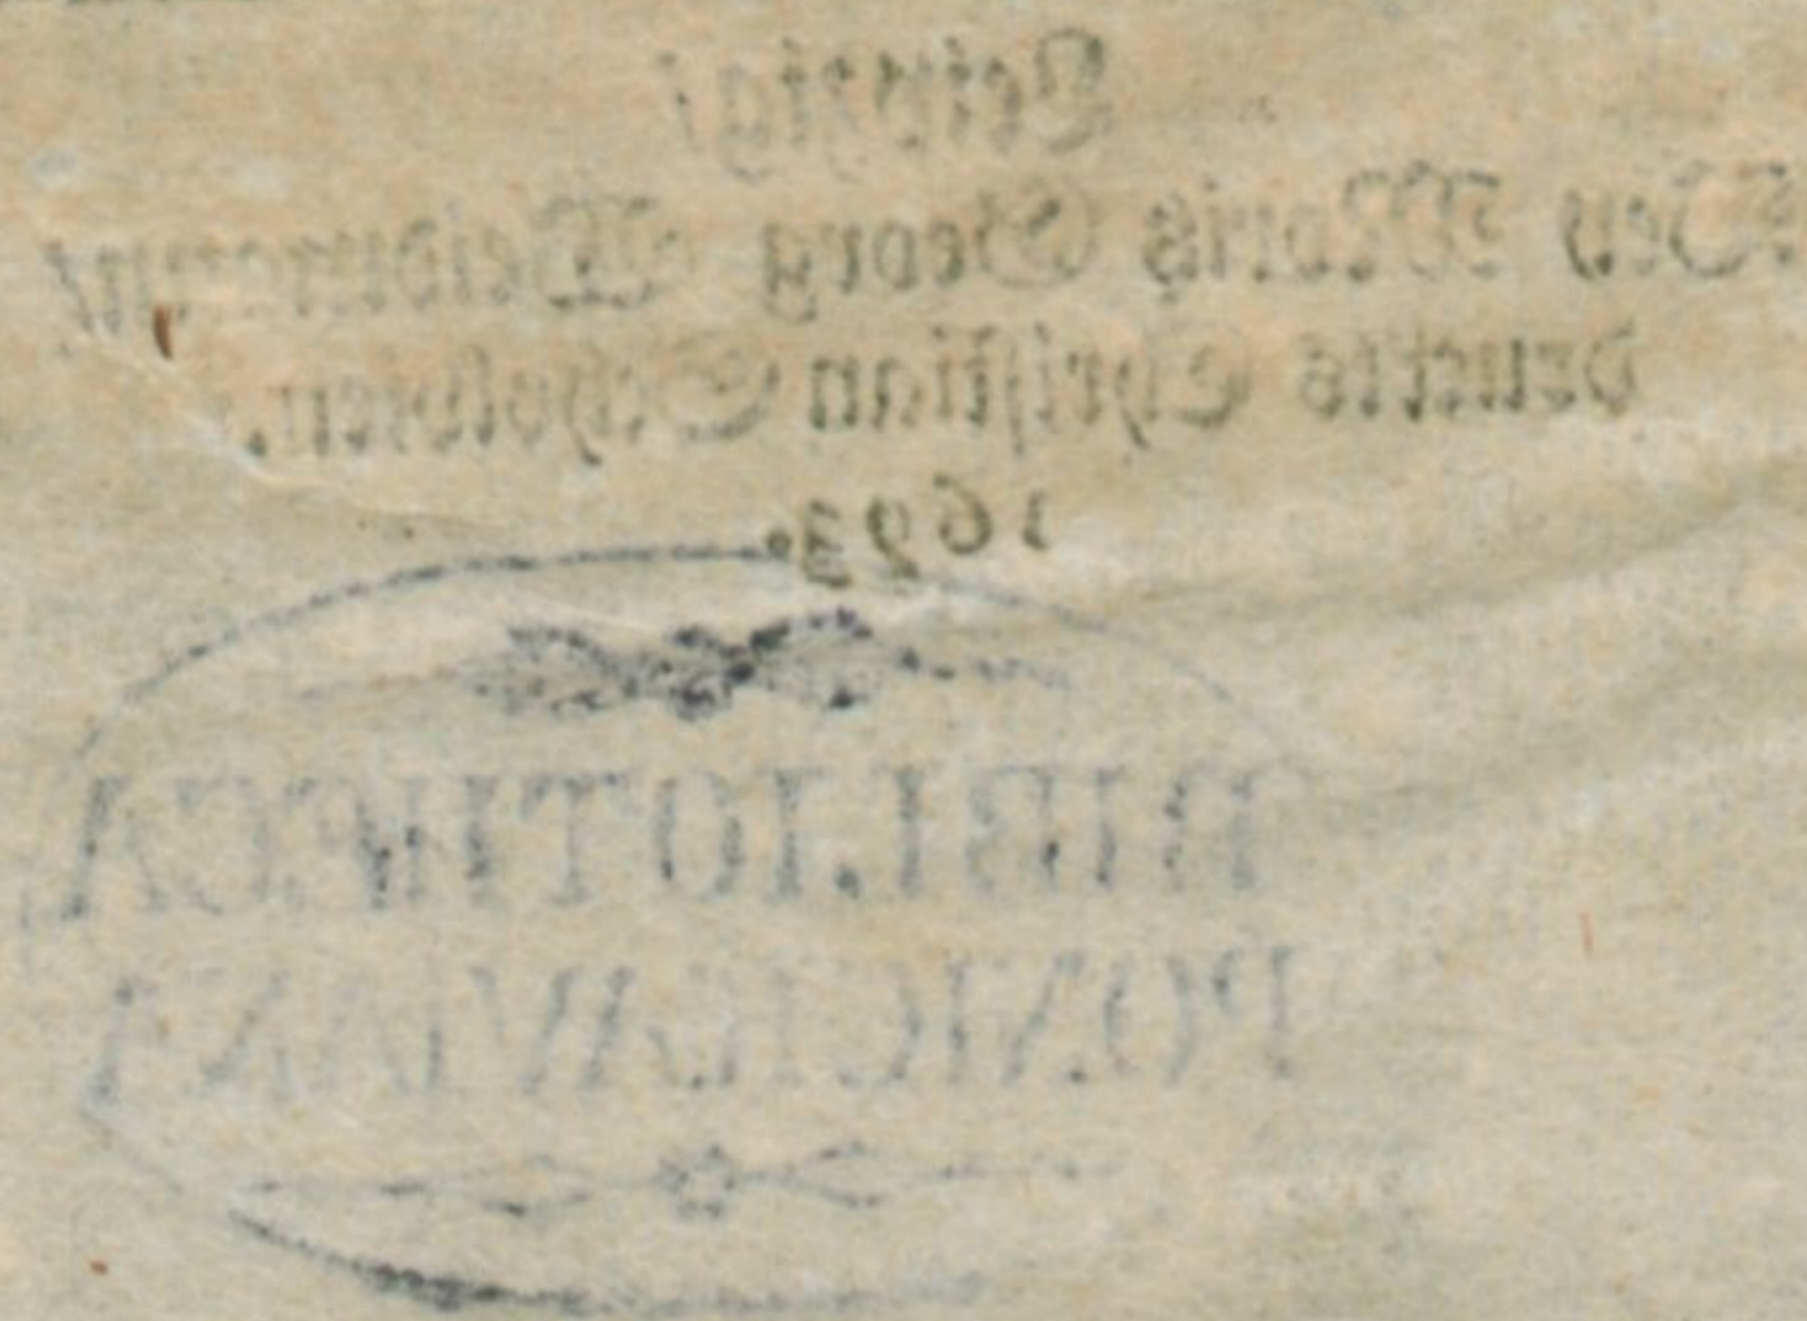 Leipzig/
Bey Moritz Georg Weidmann/
druckts Christian Scholvien.
1693.
BIBLIOTHECA
PONICKAVIANA